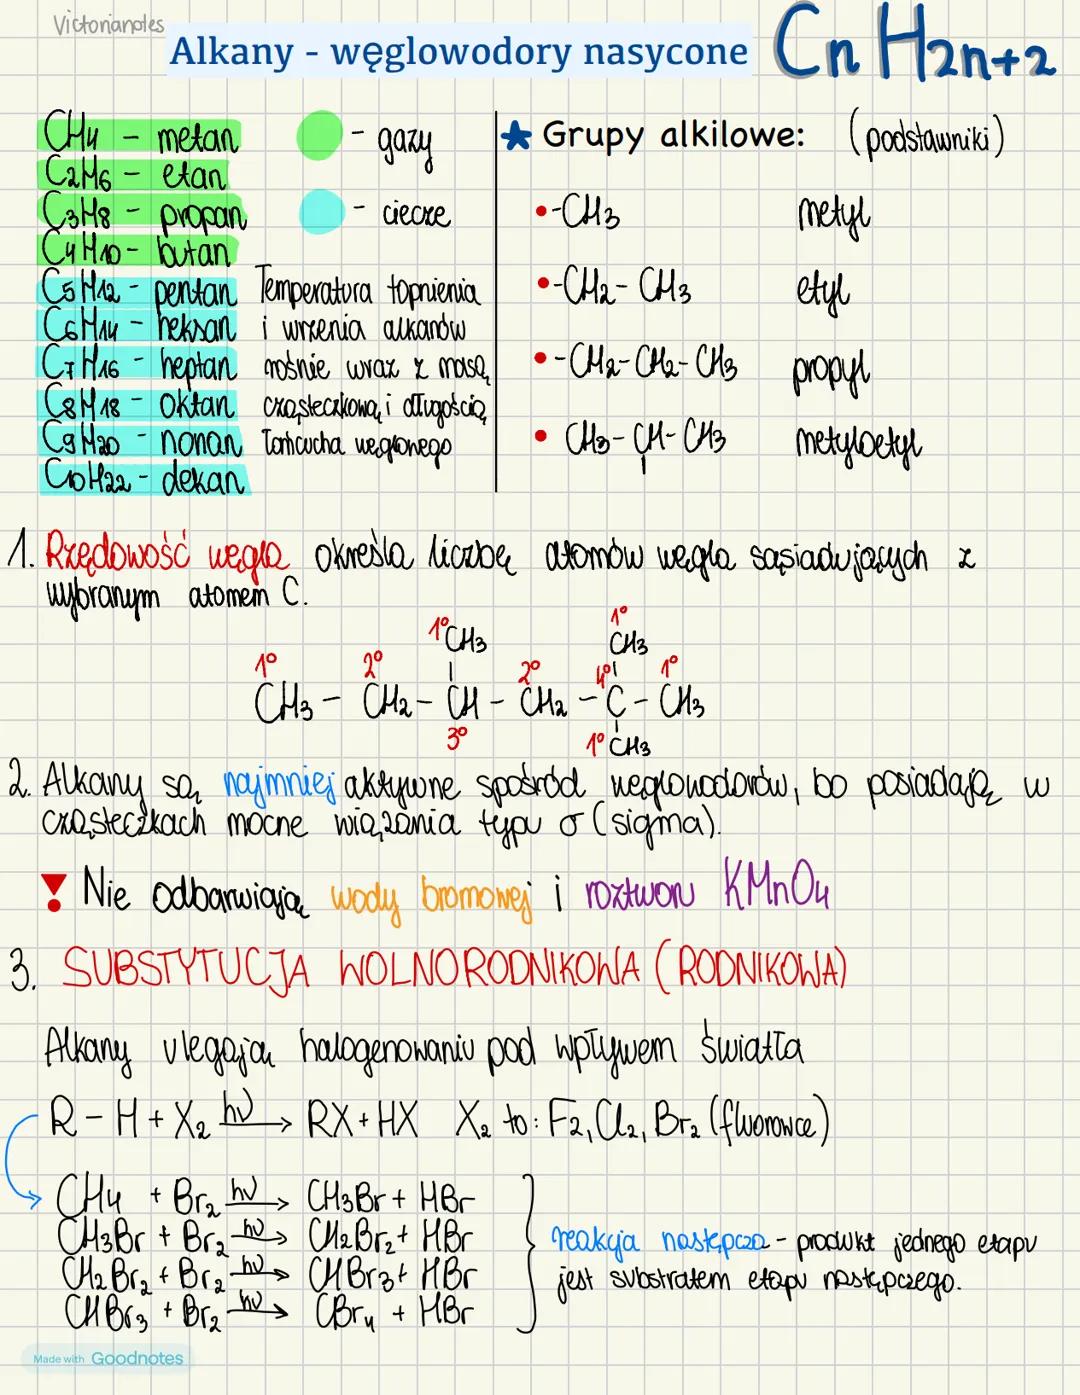 Victorianotes
Alkany - węglowodory nasycone CnH2n+2
CH4 - metan
C2H6 - etan
C3H8 - propan
C4H10 - butan
C5H12 - pentan
C6H14 - heksan
C7H16 - heptan
C8H18 - oktan
C9H20 - nonan
C10H22 - dekan
- gazy
- ciecze
Temperatura topnienia
i wrzenia alkanów
rośnie wraz z masą
cząsteczkową i długością
łańcucha węglowego
★ Grupy alkilowe: (podstawniki)
• -CH3 metyl
• -CH2-CH3 etyl
• -CH2-CH2-CH3 propyl
• CH3-CH-CH3 metyloetyl
1. Rzędowość węgla określa liczbę atomów węgla sąsiadujących z
wybranym atomem C.
1° CH3 1° CH3
1° 2° 2° 4° 1°
CH3 - CH2 - CH - CH2 - C - CH3
3° 1° CH3
2. Alkany są najmniej aktywne spośród węglowodorów, bo posiadają w
cząsteczkach mocne wiązania typu σ (sigma).
! Nie odbarwiają wody bromowej i roztworu KMnO4
3. SUBSTYTUCJA WOLNORODNIKOWA (RODNIKOWA)
Alkany ulegają halogenowaniu pod wpływem światła
R-H + X2 hν→ RX + HX X2 to: F2, Cl2, Br2 (fluorowce)
CH4 + Br2 hν→ CH3Br + HBr
CH3Br + Br2 hν→ CH2Br2 + HBr
CH2Br2 + Br2 hν→ CHBr3 + HBr
CHBr3 + Br2 hν→ CBr4 + HBr
reakcja następcza - produkt jednego etapu
jest substratem etapu następczego.
Made with Goodnotes